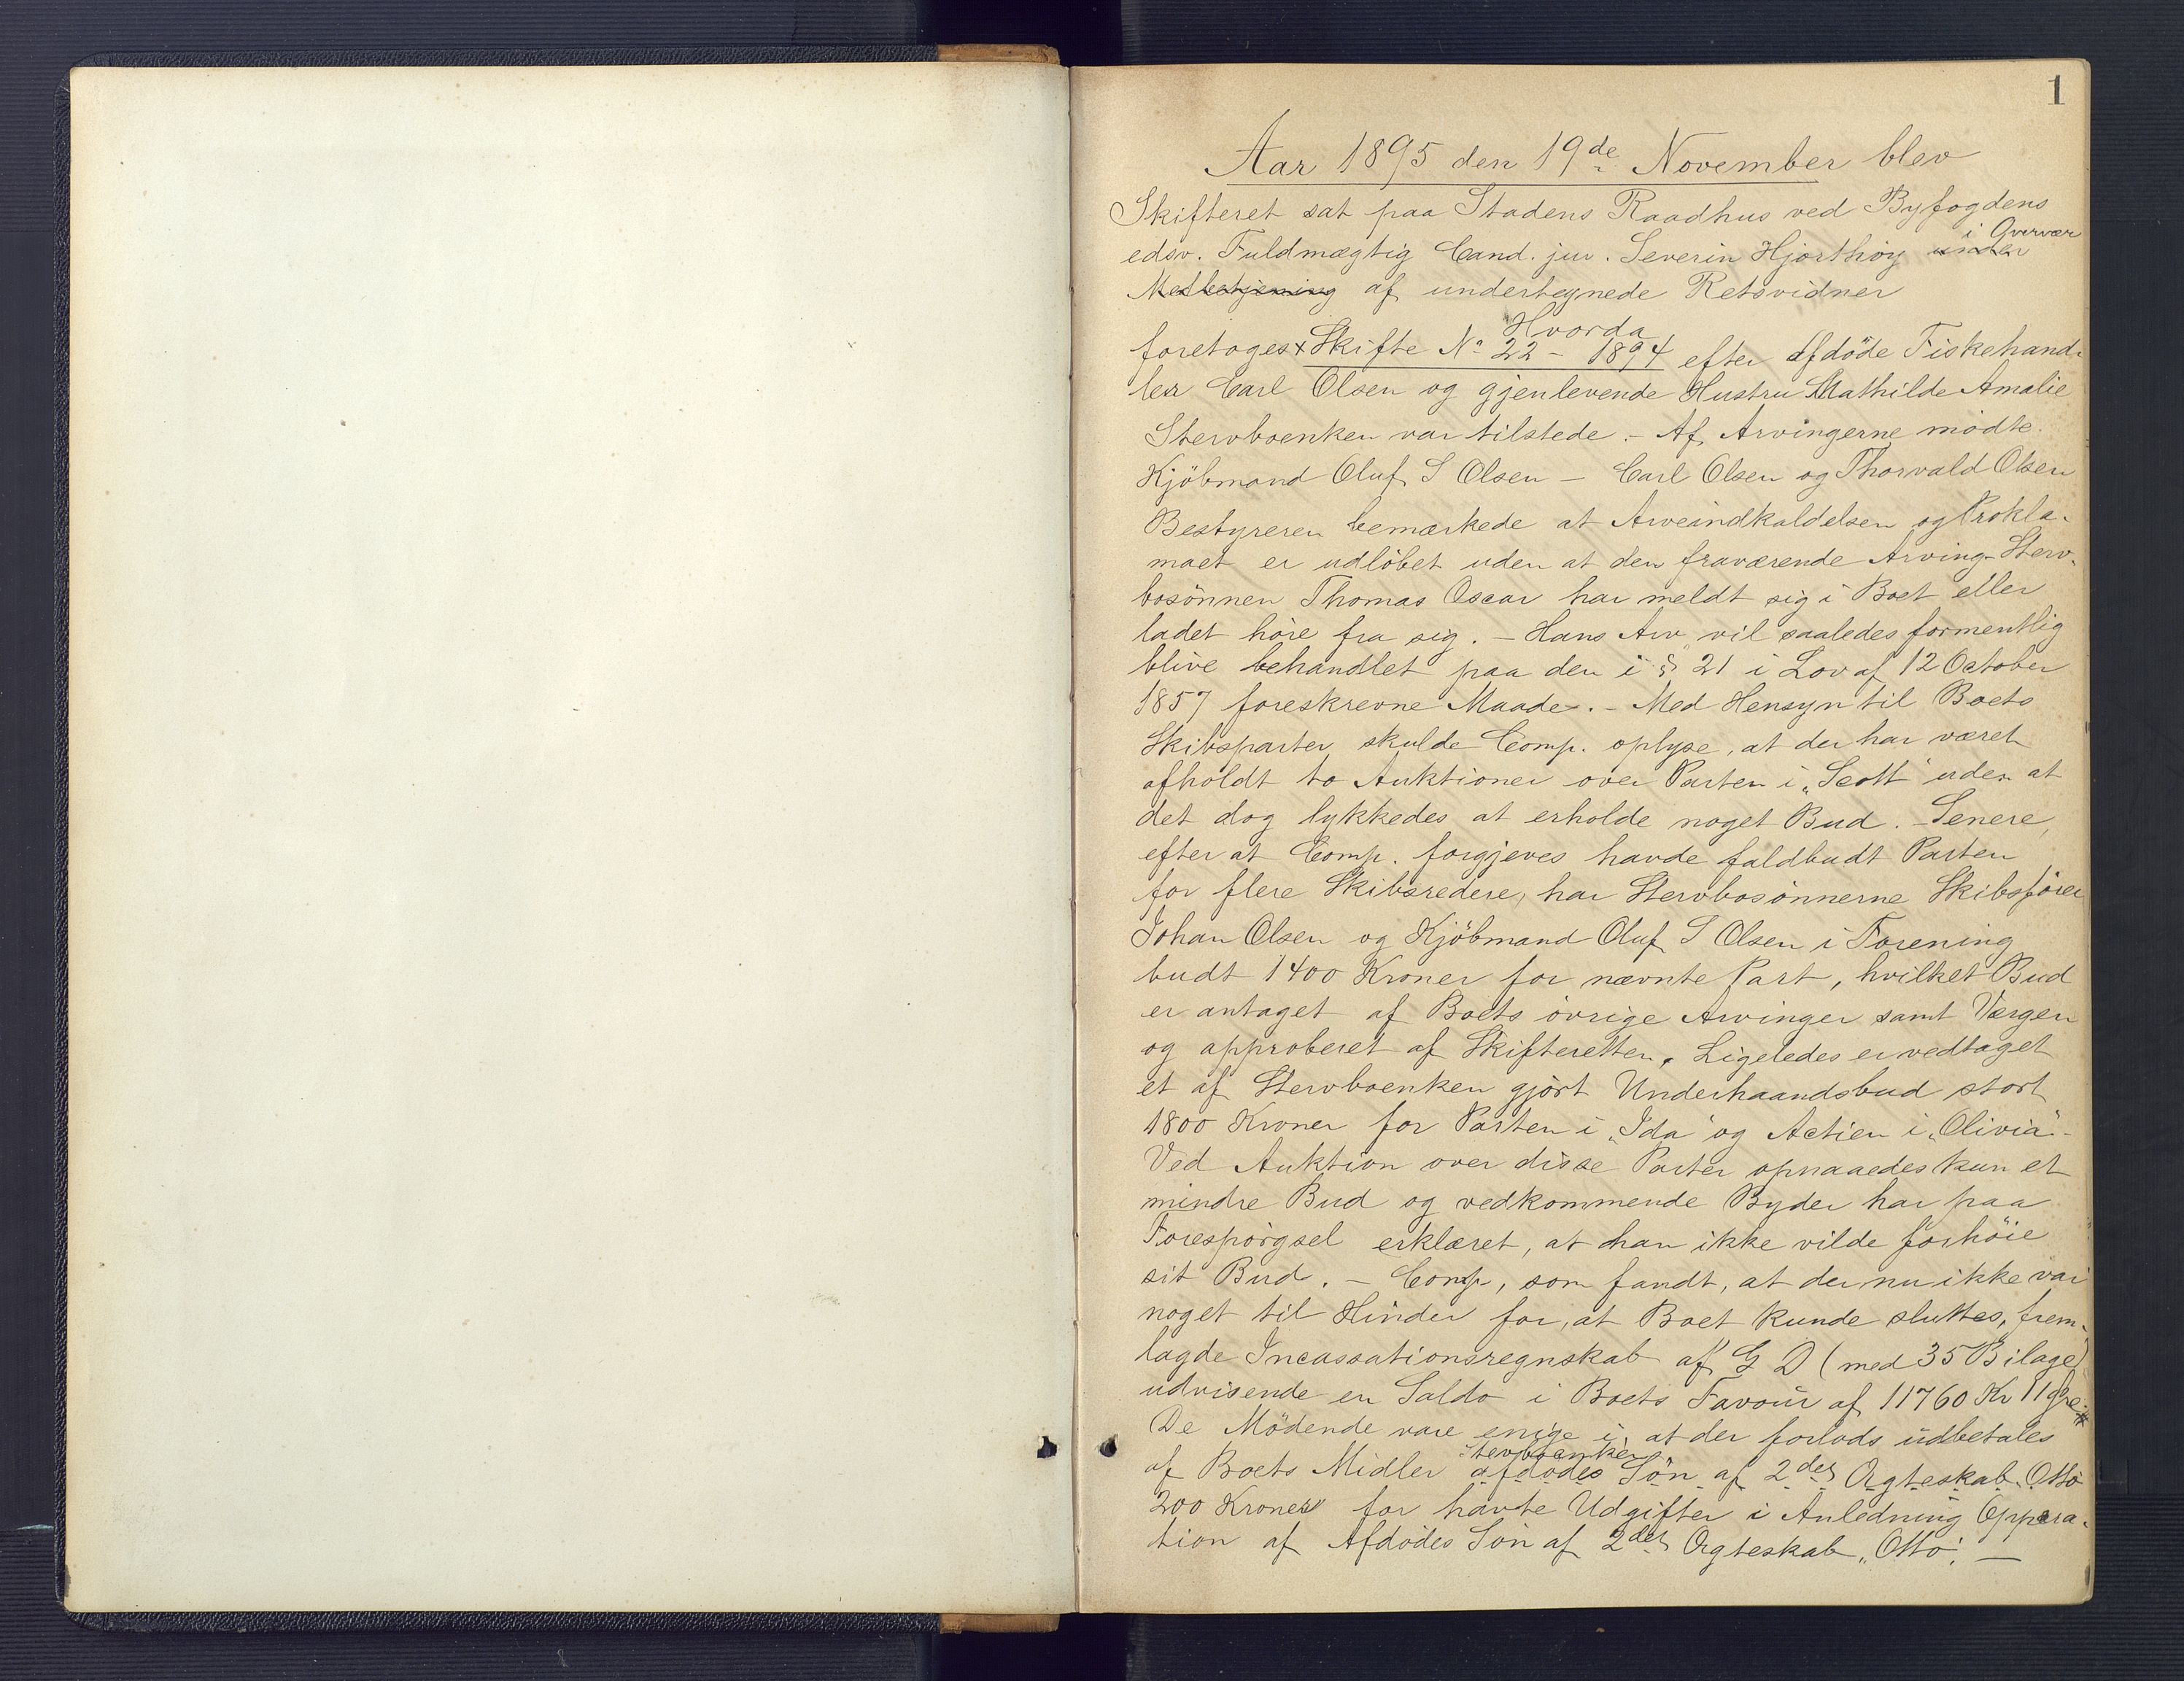 1
Aar 1895 den 19de November blev
Skifteret sat paa Stadens Raadhus ved Byfogdens
edsv. Fuldmægtig Cand. jur. Severin Hjorthøy under i Overvær
Medbetjening af undertegnede Retsvidner
Hvorda
foretoges x Skifte No 22 - 1894 efter afdöde Fiskehand-
ler Carl Olsen og gjenlevende Hustru Mathilde Amalie
Stervboenken var tilstede. - Af Arvingerne mödte
Kjöbmand Oluf S Olsen - Carl Olsen og Thorvald Olsen
Bestyreren bemærkede at Arveindkaldelsen og Prokla-
maet er udlöbet uden at den fraværende Arving Sterv-
bosönnen Thomas Oscar har meldt sig i Boet eller
ladet höre fra sig. - Hans Arv vil saaledes formentlig
blive behandlet paa den i § 21 i Lov af 12 October
1857 foreskrevne Maade. - Med Hensyn til Boets
Skibsparter skulde Comp. oplyse, at der har været
afholdt to Auktioner over Parten i „Scott" uden at
det dog lykkedes at erholde noget Bud. - Senere,
efter at Comp. forgjeves havde faldbudt Parten
for flere Skibsredere, har Stervbosönnerne Skibsförer
Johan Olsen og Kjöbmand Oluf S Olsen i Forening
budt 1400 Kroner for nævnte Part, hvilket Bud
er antaget af Boets övrige Arvinger samt Værgen
og approberet af Skifteretten. Ligeledes er vedtaget
et af Stervboenken gjört Underhaandsbud stort
1800 Kroner for Parten i „Ida" og Actien i „Olivia" -
Ved Auktion over disse Parter opnaaedes kun et
mindre Bud og vedkommende Byder har paa
Forespörgsel erklæret, at han ikke vilde forhöie
sit Bud. - Comp, som fandt, at der nu ikke var
noget til Hinder for, at Boet kunde sluttes, frem-
lagde Incassationsregnskab af G D (med 35 Bilage)
udvisende en Saldo i Boets Favour af 11760 Kr 11 Øre
De Mödende vare enige i, at der forlods udbetales
Stervboenken
af Boets Midler afdödes Sön af 2det Ægteskab Otto
200 Kroner for havte Udgifter i Anledning Oppera-
tion af Afdödes Sön af 2det Ægteskab „Otto". -